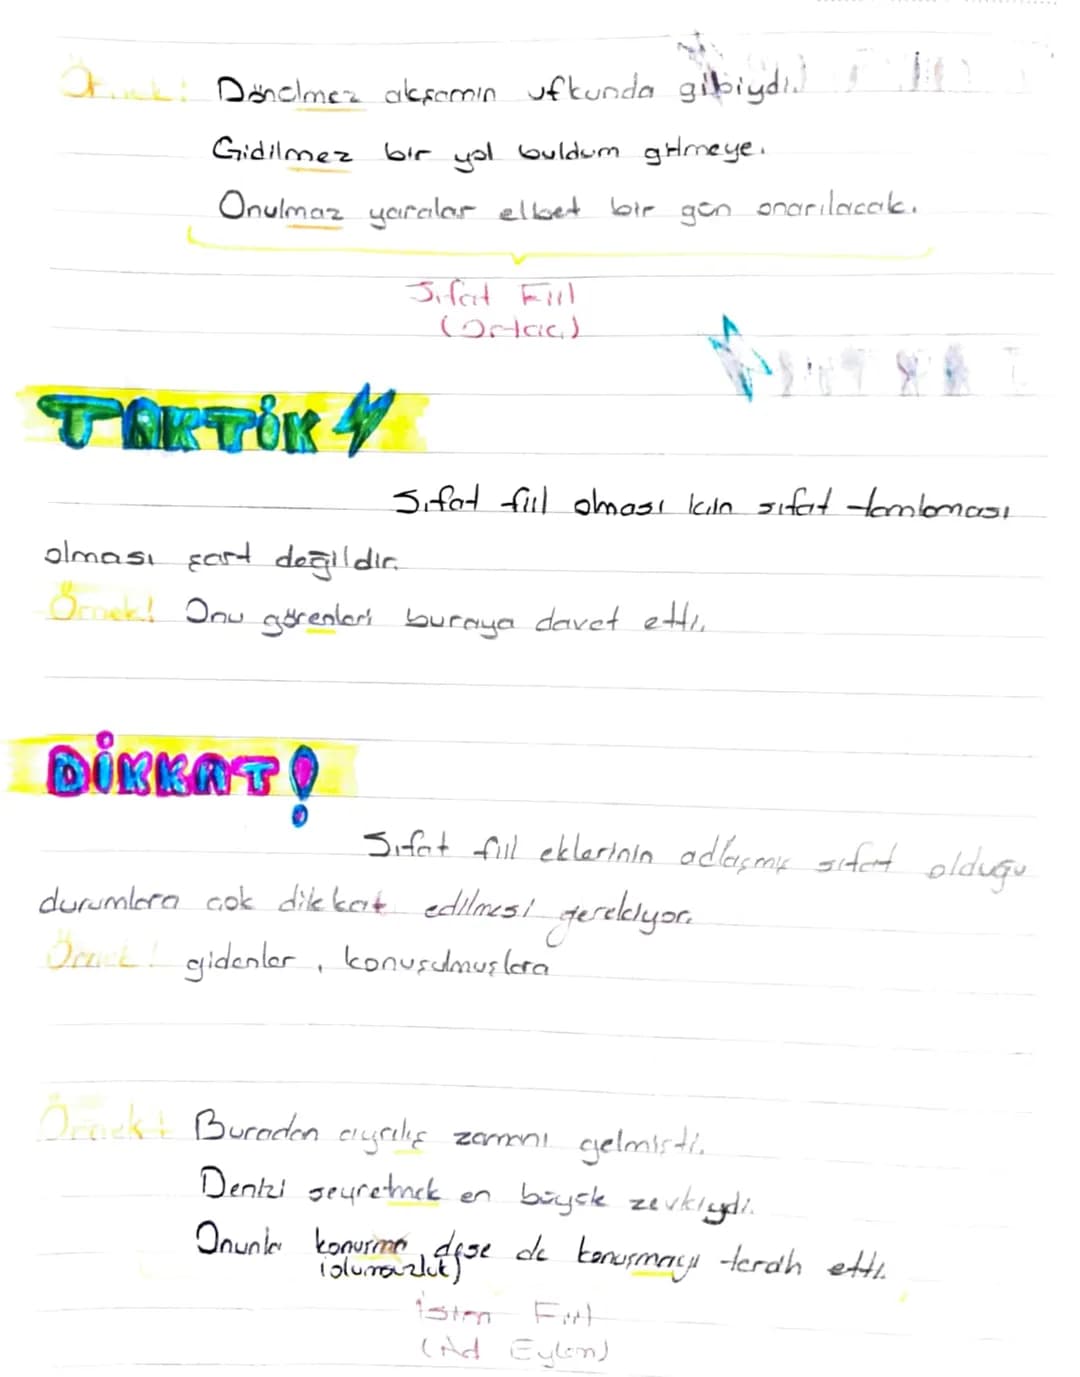 Örnek! Dönelmez akşamın ufkunda gibiydi.
Gidilmez bir yol buldum gitmeye.
Onulmaz yaralar elbet bir gün onarılacak.
Sıfat Fiil
(Ortaç)
TAKTİK
Sıfat fiil olması için sıfat tamlaması
olması şart değildir.
Örnek! Onu görenleri buraya davet etti.
DİKKAT!
Sıfat fiil eklerinin adlaşmış sıfat olduğu
durumlara çok dikkat edilmesi gerekiyor.
Örnek! gidenler, konuşulmuşlara
Örnek! Buradan ayrılış zamanı gelmişti.
Denizi seyretmek en büyük zevkiydi.
Onunla konuşma, dese de konuşmayı tercih etti.
(olumsuzluk)
İsim Fiil
(Ad Eylem)